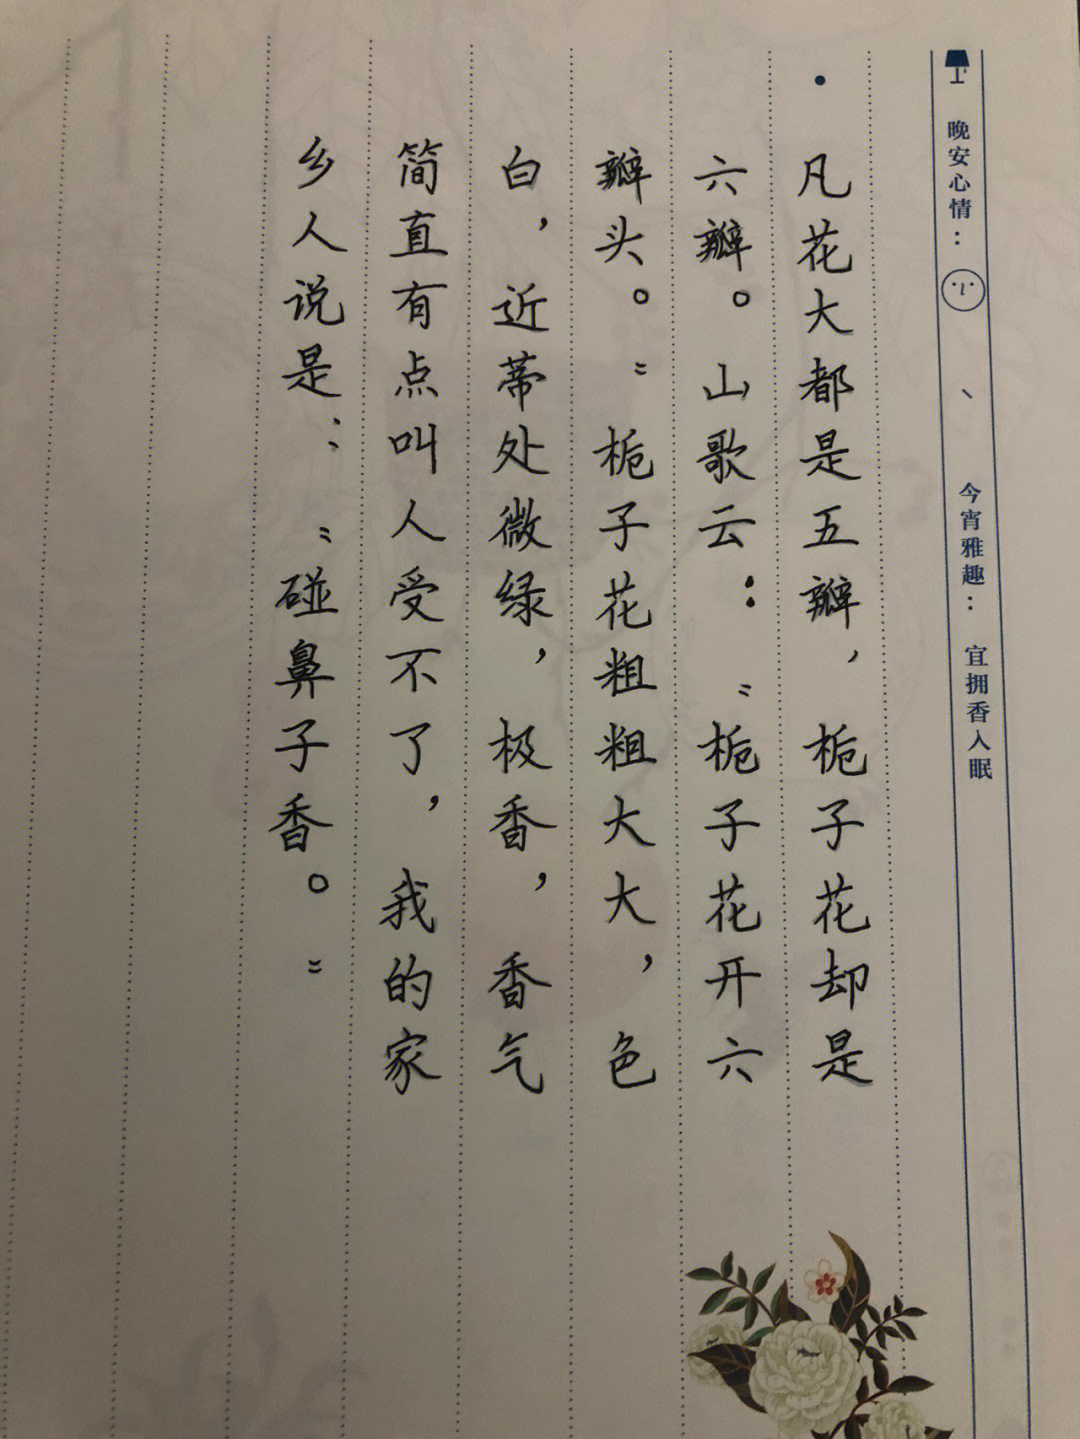 晚安心情：
今宵雅趣：宜拥香入眠
·凡花大都是五瓣，栀子花却是
六瓣。山歌云：“栀子花开六
瓣头。”栀子花粗粗大大，色
白，近蒂处微绿，极香，香气
简直有点叫人受不了，我的家
乡人说是：“碰鼻子香。”